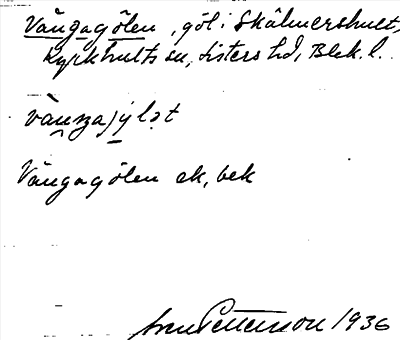 Vångagölen, göl i Skälmershult,
Kyrkhults sn, Listers hd, Blek. l.
Vångagölen ek, bek
Sven Petterson 1936